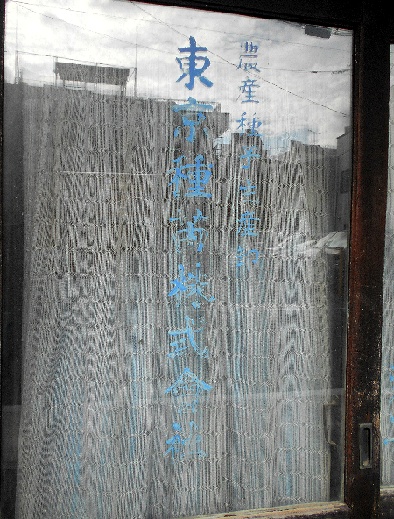 農産種子生産卸
東京種苗株式会社